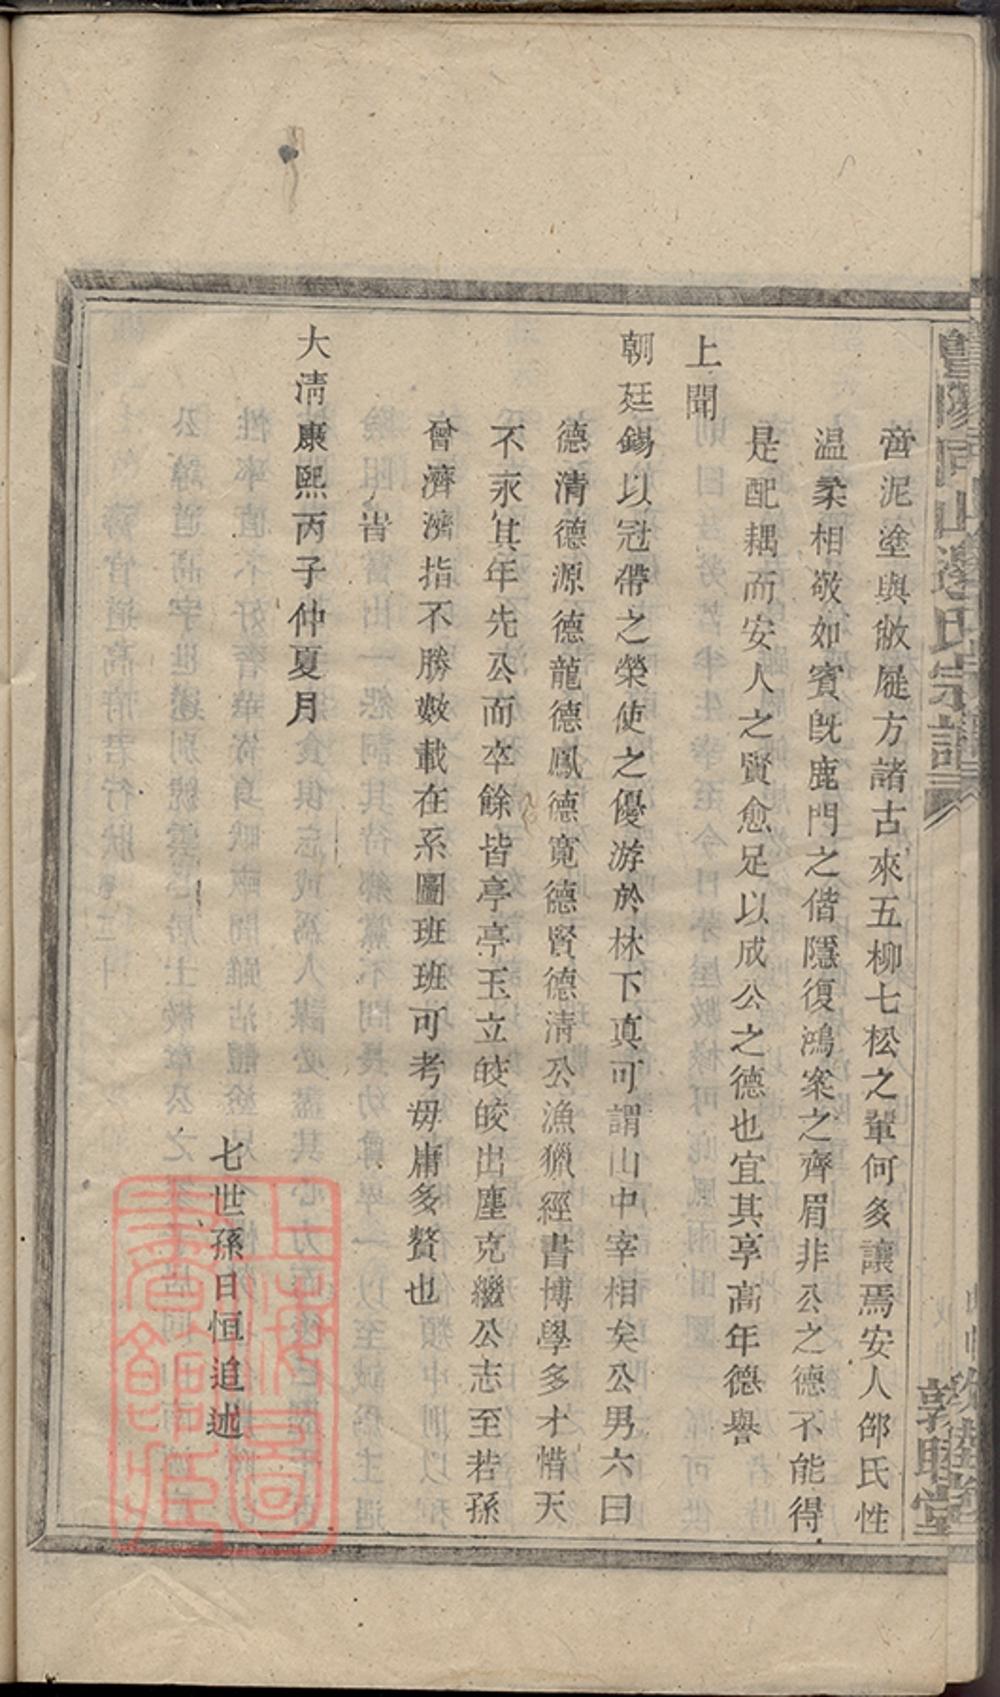 啻泥塗與敝屣方諸古來五柳七松之輩何多讓焉安人邵氏性
温柔相敬如賓旣鹿門之偕隱復鴻案之齊眉非公之德不能得
是配耦而安人之賢愈足以成公之德也宜其享高年德譽
上聞
朝廷錫以冠帶之榮使之優游於林下真可謂山中宰相矣公男六曰
德清德源德龍德鳳德寬德賢德清公漁獵經書博學多才惜天
不永其年先公而卒餘皆亭亭玉立皎皎出塵克繼公志至若孫
曾濟濟指不勝數載在系圖班班可考毋庸多贅也
旹
大清康熙丙子仲夏月
七世孫日恒追述
敦睦堂
上海圖書館藏